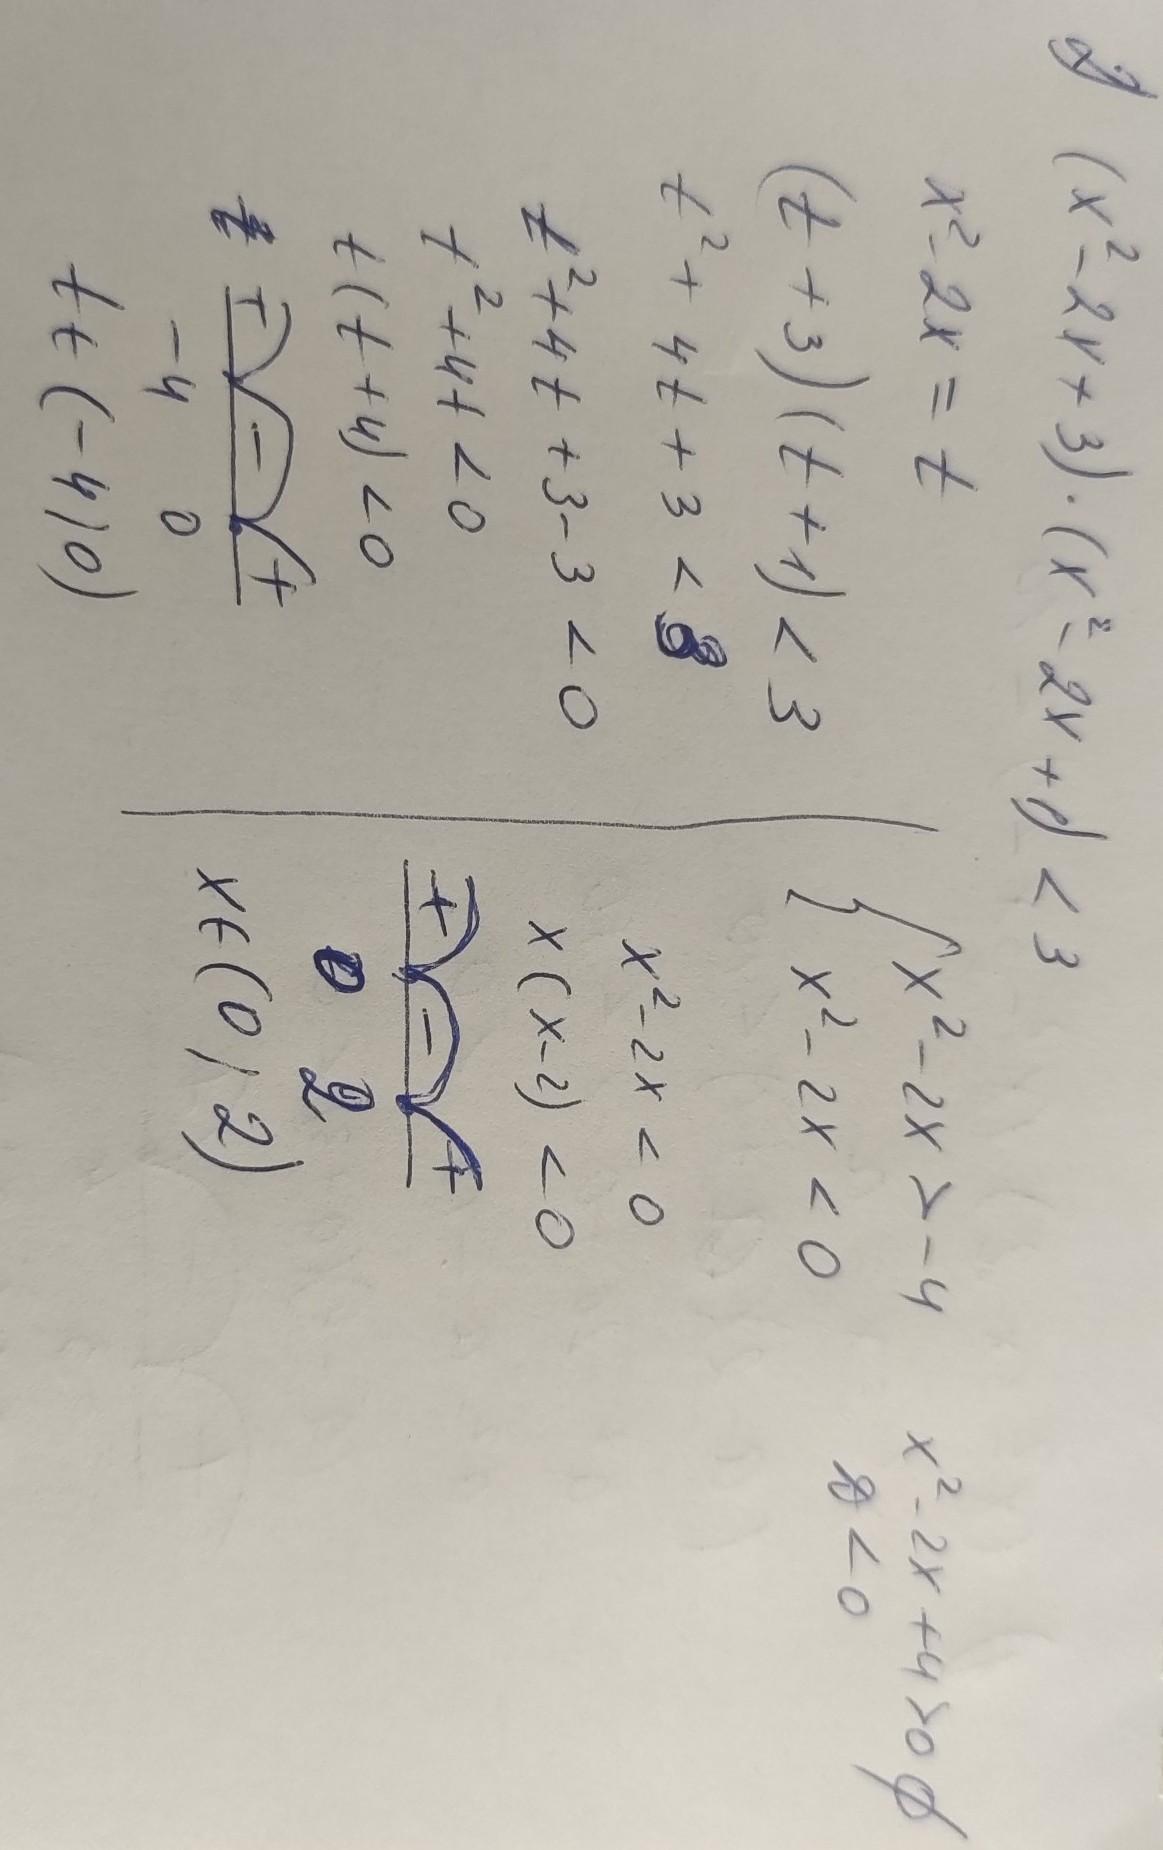 2) (x²-2x+3)·(x²-2x+1)<3
x²-2x=t
(t+3)(t+1)<3
t²+4t+3<3
t²+4t+3-3<0
t²+4t<0
t(t+4)<0
+ - +
-4 0
t∈(-4;0)
{x²-2x>-4
x²-2x<0
x²-2x+4>0 ∅
D<0
x²-2x<0
x(x-2)<0
+ - +
0 2
x∈(0;2)